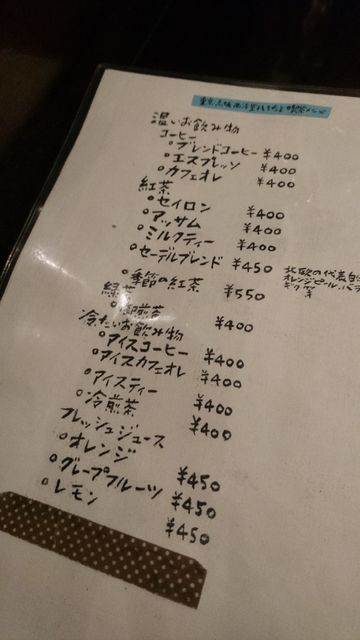 温いお飲み物
コーヒー
○ブレンドコーヒー ¥400
○エスプレッソ ¥400
○カフェオレ ¥400
紅茶
○セイロン ¥400
○アッサム ¥400
○ミルクティー ¥400
○セーデルブレンド ¥450 北欧の代表
オレンジピール、バラ
○季節の紅茶 ¥550
緑茶
○御煎茶 ¥400
冷たいお飲み物
○アイスコーヒー ¥400
○アイスカフェオレ ¥400
○アイスティー ¥400
○冷煎茶 ¥400
フレッシュジュース
○オレンジ ¥450
○グレープフルーツ ¥450
○レモン ¥450